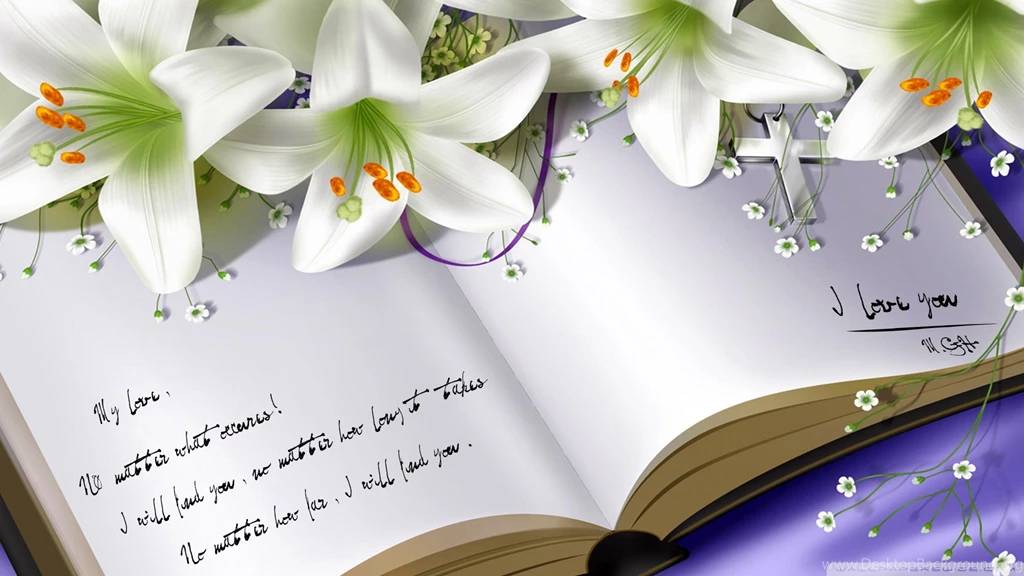 My love,
No matter what occures!
I will find you, no matter how long it takes
No matter how far, I will find you.
I love you
www.DesktopBackground.org